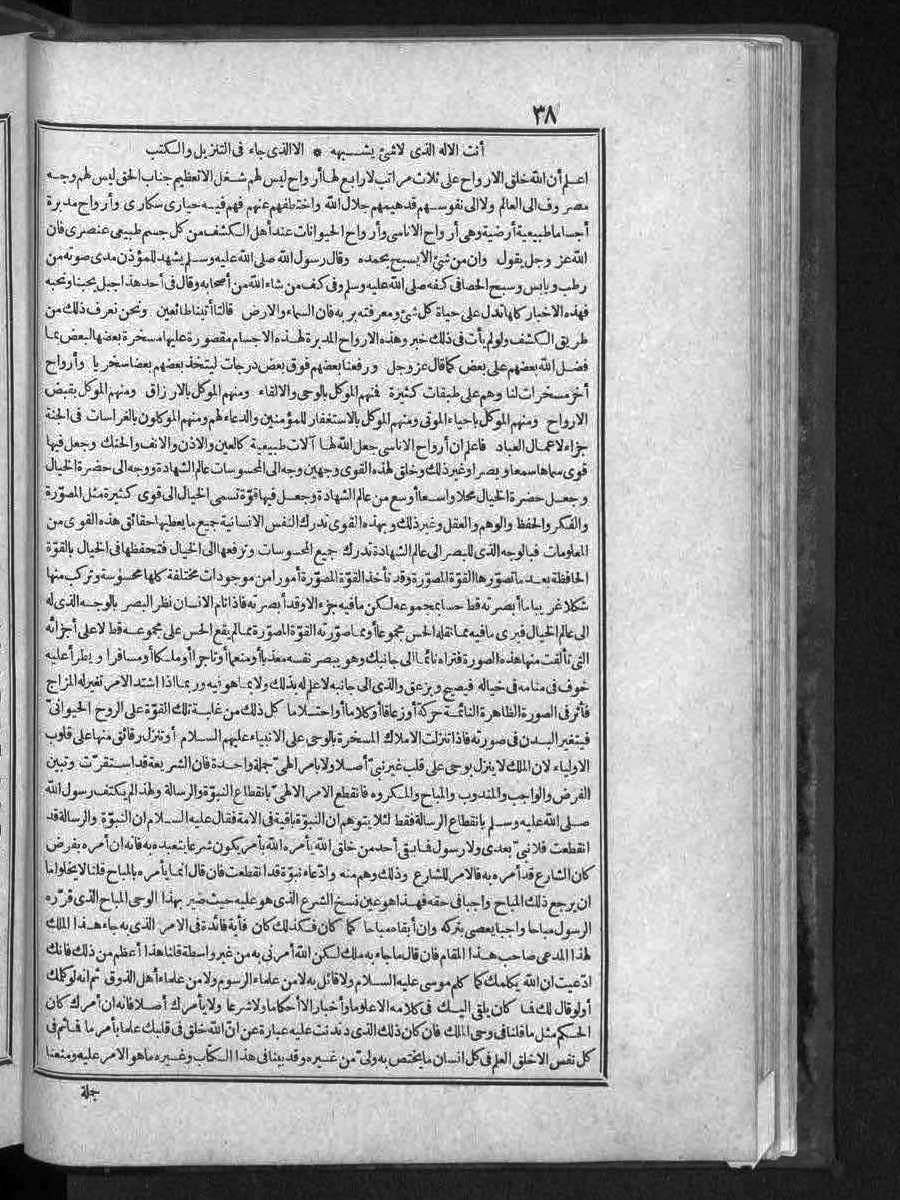 ٣٨
أنت الاله الذى لاشئ يشبهه * الا الذى جاء فى التنزيل والكتب
اعلم أن الله خلق الارواح على ثلاث مراتب لارابع لها أرواح ليس لهم شغل الاتعظيم جناب الحق ليس لهم وجه
مصروف الى العالم ولا الى نفوسهم قد هيمهم جلال الله واختطفهم عنهم فهم فيه حيارى سكارى وأرواح مدبرة
أجساما طبيعية أرضية وهى أرواح الاناسى وأرواح الحيوانات عند أهل الكشف من كل جسم طبيعى عنصرى فان
الله عز وجل يقول وان من شئ الا يسبح بحمده وقال رسول الله صلى الله عليه وسلم يشهد للمؤذن مدى صوته من
رطب ويابس وسبح الحصا فى كفه صلى الله عليه وسلم وفى كف من شاء الله من أصحابه وقال فى أحد هذا جبل يحبنا ونحبه
فهذه الاخبار كلها تدل على حياة كل شئ ومعرفته بربه فان السماء والارض قالتا أتينا طائعين ونحن نعرف ذلك من
طريق الكشف ولو لم يأت فى ذلك خبر وهذه الارواح المدبرة لهذه الاجسام مقصورة عليها مسخرة بعضها لبعض بما
فضل الله بعضهم على بعض كما قال عز وجل ورفعنا بعضهم فوق بعض درجات ليتخذ بعضهم بعضا سخريا وأرواح
أخر مسخرات لنا وهم على طبقات كثيرة فمنهم الموكل بالوحى والالقاء ومنهم الموكل بالارزاق ومنهم الموكل بقبض
الارواح ومنهم الموكل باحياء الموتى ومنهم الموكل بالاستغفار للمؤمنين والدعاء لهم ومنهم الموكلون بالغراسات فى الجنة
جزاء لاعمال العباد فاعلم ان أرواح الاناسى جعل الله لها آلات طبيعية كالعين والاذن والانف والحنك وجعل فيها
قوى سماها سمعا وبصرا وغير ذلك وخلق لهذه القوى وجهين وجه الى المحسوسات عالم الشهادة ووجه الى حضرة الخيال
وجعل حضرة الخيال محلا واسعا أوسع من عالم الشهادة وجعل فيها قوّة تسمى الخيال الى قوى كثيرة مثل المصوّرة
والفكر والحفظ والوهم والعقل وغير ذلك وبهذه القوى تدرك النفس الانسانية جميع ما يعطيها حقائق هذه القوى من
المعلومات فبالوجه الذى للبصر الى عالم الشهادة تدرك جميع المحسوسات وترفعها الى الخيال فتحفظها فى الخيال بالقوّة
الحافظة بعد ما تصوّرها القوّة المصوّرة وقد تأخذ القوّة المصوّرة أمورا من موجودات مختلفة كلها محسوسة وتركب منها
شكلا غريبا ما أبصرته قط حسا بمجموعه لكن ما فيه جزء الا وقد أبصرته فاذا نام الانسان نظر البصر بالوجه الذى له
الى عالم الخيال فيرى ما فيه مما نقله الحس مجموعا أو مما صوّرته القوّة المصوّرة مما لم يقع الحس على مجموعه قط لا على أجزائه
التى تألفت منها هذه الصورة فتراه نائما الى جانبك وهو يبصر نفسه معذبا أو منعما أو تاجرا أو ملكا أو مسافرا ويطرأ عليه
خوف فى منامه فى خياله فيصيح ويزعق والذى الى جانبه لا علم له بذلك ولا بما هو فيه وربما اذا اشتد الامر تغير له المزاج
فأثر فى الصورة الظاهرة النائمة حركة أو زعاقا أو كلاما أو احتلاما كل ذلك من غلبة تلك القوّة على الروح الحيوانىّ
فيتغير البدن فى صورته فاذا تنزلت الاملاك المسخرة بالوحى على الانبياء عليهم السلام أو تنزل رقائق منها على قلوب
الاولياء لان الملك لا ينزل بوحى على قلب غير نبىّ أصلا ولا بامر الهىّ جملة واحدة فان الشريعة قد استقرّت وتبين
الفرض والواجب والمندوب والمباح والمكروه فانقطع الامر الالهىّ بانقطاع النبوّة والرسالة ولهذا لم يكتف رسول الله
صلى الله عليه وسلم بانقطاع الرسالة فقط لئلا يتوهم ان النبوّة باقية فى الامة فقال عليه السلام ان النبوّة والرسالة قد
انقطعت فلا نبىّ بعدى ولا رسول فما بقى أحد من خلق الله يأمره الله بأمر يكون شرعا يتعبده به فانه ان أمره بفرض
كان الشارع قد أمره به فالامر للشارع وذلك وهم منه وادّعاء نبوّة قد انقطعت فان قال انما يأمره بالمباح قلنا لا يخلو اما
ان يرجع ذلك المباح واجبا فى حقه فهذا هو عين نسخ الشرع الذى هو عليه حيث صير بهذا الوحى المباح الذى قرّره
الرسول مباحا واجبا يعصى بتركه وان أبقاه مباحا كما كان فكذلك كان فأية فائدة فى الامر الذى به جاء هذا الملك
لهذا المدعى صاحب هذا المقام فان قال ما جاءبه ملك لكن الله أمرنى به من غير واسطة قلنا هذا أعظم من ذلك فانك
ادّعيت ان الله يكلمك كما كلم موسى عليه السلام ولا قائل به لا من علماء الرسوم ولا من علماء أهل الذوق ثم انه لو كلمك
أو لو قال لك فما كان يلقى اليك فى كلامه الا علوما وأخبارا لا أحكاما ولا شرعا ولا يأمرك أصلا فانه ان أمرك كان
الحكم مثل ما قلنا فى وحى الملك فان كان ذلك الذى دندنت عليه عبارة عن انّ الله خلق فى قلبك علما بأمر ما فما ثم فى
كل نفس الا خلق العلم فى كل انسان ما يختص به ولىّ من غيره وقد بينا فى هذا الكتاب وغيره ما هو الامر عليه ومنعنا
جملة